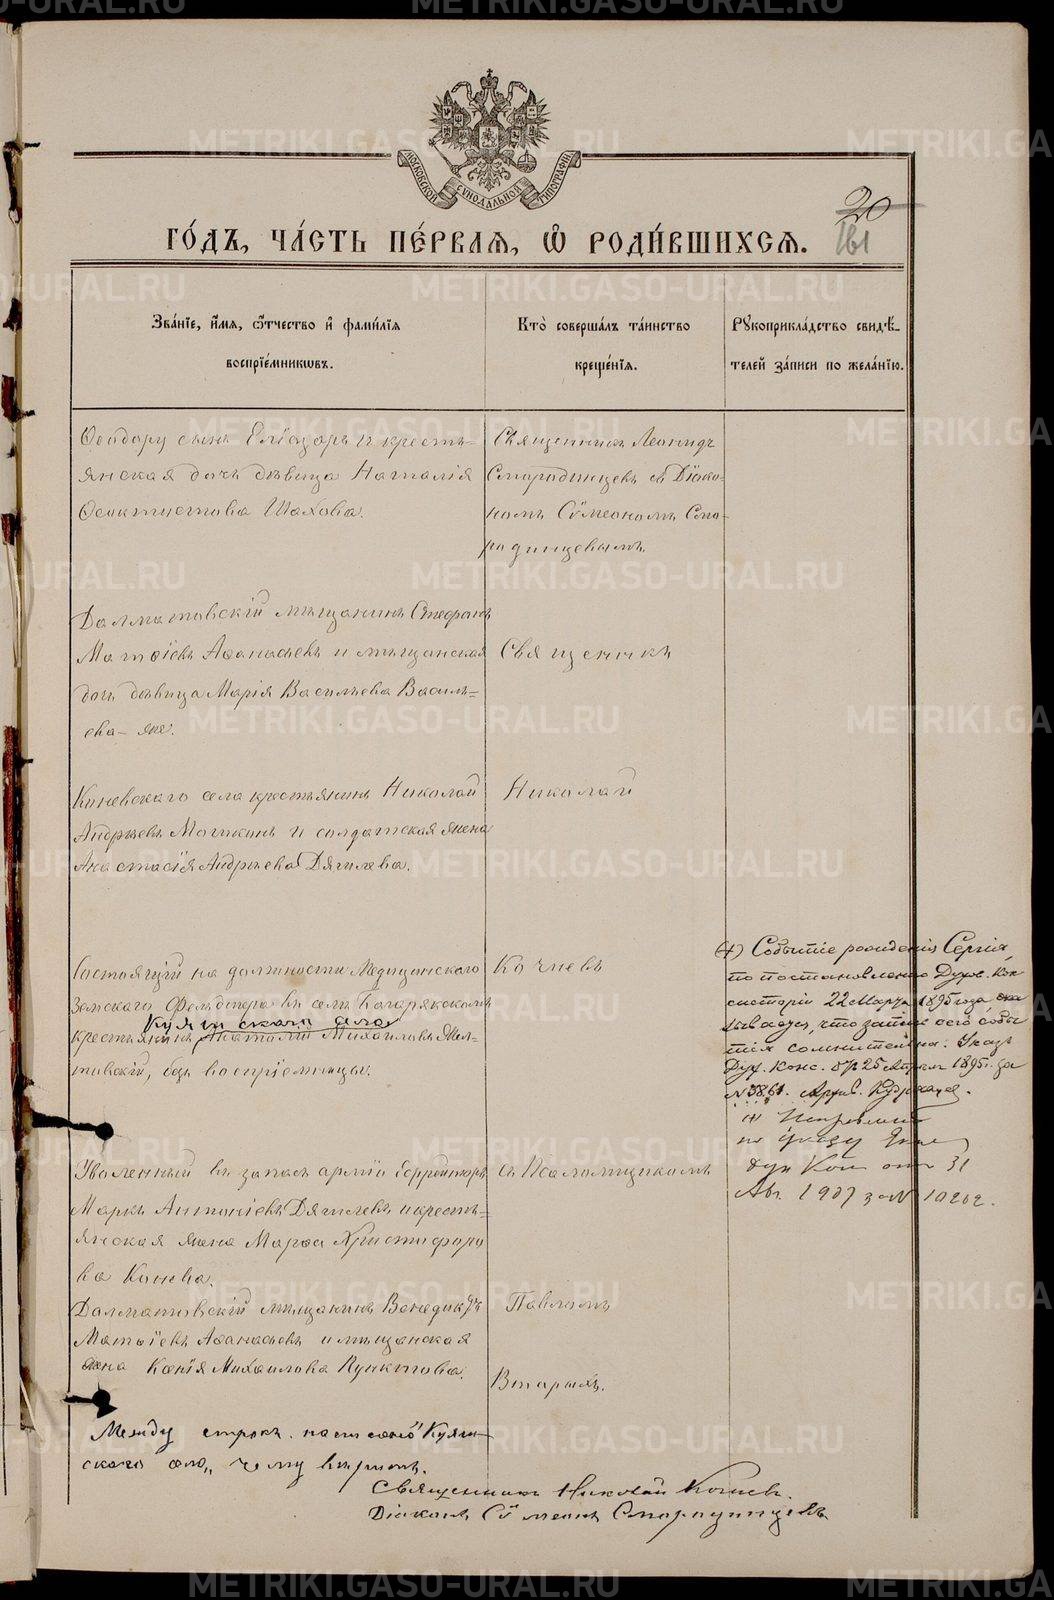 МОСКОВСКОЙ СѴНОДАЛЬНОЙ ТИПОГРАФІИ
20
161
ГО́ДЪ, ЧА́СТЬ ПЕ́РВАЯ, Ѽ РОДИ́ВШИХСЯ.
Зва́нїе, и҆́мя, ѻ҆́тчество и҆ фами́лїя
воспрїе́мникѡвъ.
Кто̀ соверша́лъ та́инство
креще́нїя.
Рꙋкоприкла́дство свидѣ́-
телей за́писи по жела́нїю.
Ѳеодору сынъ Еліазаръ и кресть-
янская дочь дѣвица Наталія
Ѳеоктистова Шахова.
Священникъ Леонидъ
Смородинцевъ съ Діако-
номъ Сѵмеономъ Смо-
родинцевымъ.
Далматовскій мѣщанинъ Стефанъ
Матѳіевъ Аѳанасьевъ и мѣщанская
дочь дѣвица Марія Васильева Василь-
ева - же.
Священникъ
Коневскаго села крестьянинъ Николай
Андреевъ Мошкинъ и солдатская жена
Анастасія Андреева Дягилева.
Николай
Состоящій на должности Медицинскаго
Земскаго Фельдшера въ селѣ Багарякскомъ
Куяшскаго село
крестьянинъ Анатолій Михайловъ Жел-
товскій, безъ воспріемницы.
Кочневъ
+) Событіе рожденія Сергія,
по постановленію Духов. Кон
систоріи 22 Марта 1895 года
что запись сего собы
тія сомнительна. Указъ
Дух. Конс. отъ 25 Апрѣля 1895. за
№ 3861.
по Указу Екат
Дух Кон отъ 31
Авг. 1907 за № 10202.
Уволенный въ запасъ арміи Ефрейторъ
Маркъ Антоніевъ Дягилевъ и кресть-
янская жена Марѳа Христофоро
ва Конева.
съ Псаломщикомъ
Далматовскій мѣщанинъ Венедиктъ
Матѳіевъ Аѳанасьевъ и мѣщанская
жена Ксенія Михайлова Пунктова.
Павломъ
Вторыхъ.
Между строкъ написано Куяш-
скаго село, чему вѣрить.
Священникъ Николай Кочнев.
Діаконъ Сѵмеонъ Смородинцевъ
METRIKI.GASO-URAL.RU